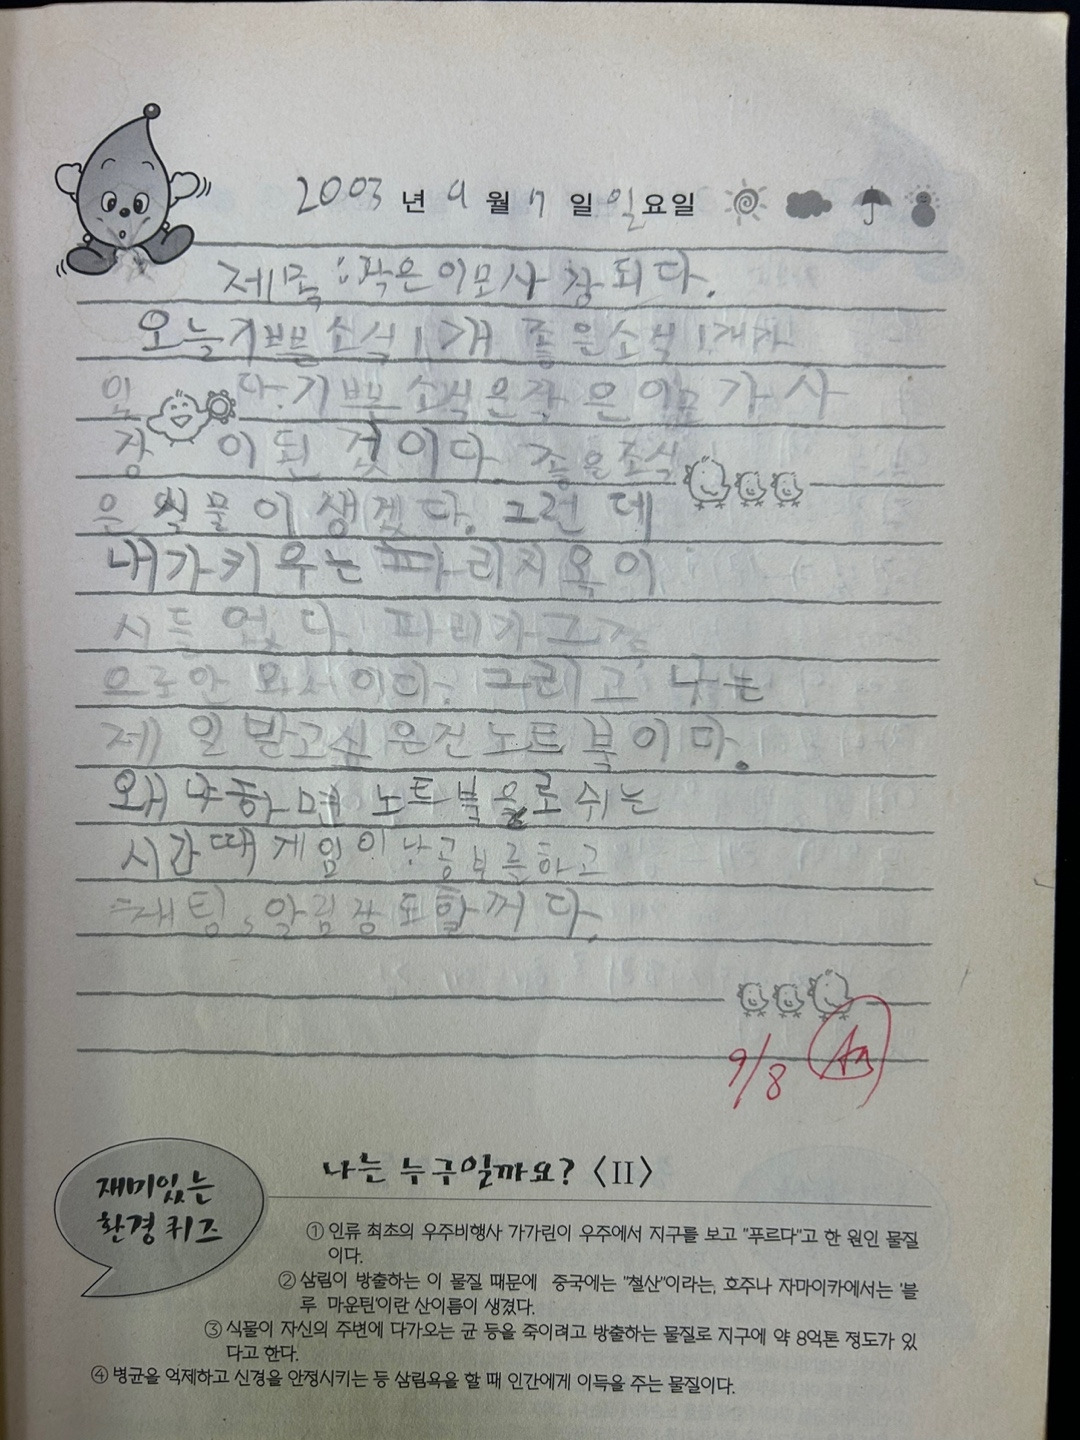 2003 년 9 월 7 일 일요일
제목 : 작은이모사장되다.
오늘기쁜소식1개 좋은소식1개가
있다.기쁜소식은작은이모가사
장이된것이다. 좋은소식
은식물이생겼다. 그런데
내가키우는파리지옥이
시들었다. 파리가그
으로안와서이다. 그리고 나는
제일받고싶은건노트북이다.
왜냐하면 노트북을로쉬는
시간때게임이나공부를하고
채팅,알림장도할꺼다.
9/8
재미있는
환경 퀴즈
나는 누구일까요? 〈II〉
① 인류 최초의 우주비행사 가가린이 우주에서 지구를 보고 "푸르다"고 한 원인 물질
이다.
② 삼림이 방출하는 이 물질 때문에 중국에는 "철산"이라는, 호주나 자마이카에서는 '블
루 마운틴'이란 산이름이 생겼다.
③ 식물이 자신의 주변에 다가오는 균 등을 죽이려고 방출하는 물질로 지구에 약 8억톤 정도가 있
다고 한다.
④ 병균을 억제하고 신경을 안정시키는 등 삼림욕을 할 때 인간에게 이득을 주는 물질이다.